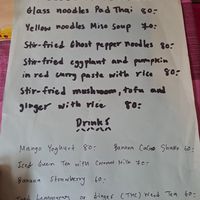 Glass noodles Pad Thai 80.-
Yellow noodles Miso Soup 70.-
Stir-fried Ghost pepper noodles 80.-
Stir-fried eggplant and pumpkin
in red curry paste with rice 80.-
Stir-fried mushroom, tofu and
ginger with rice 80.-
Drinks
Mango Yoghurt 80.- Banana Cacao Shake 60.-
Iced Green Tea with Coconut Milk 70.-
Banana Strawberry 60.-
Iced Lemongrass or Ginger (THC) Weed Tea 60.-